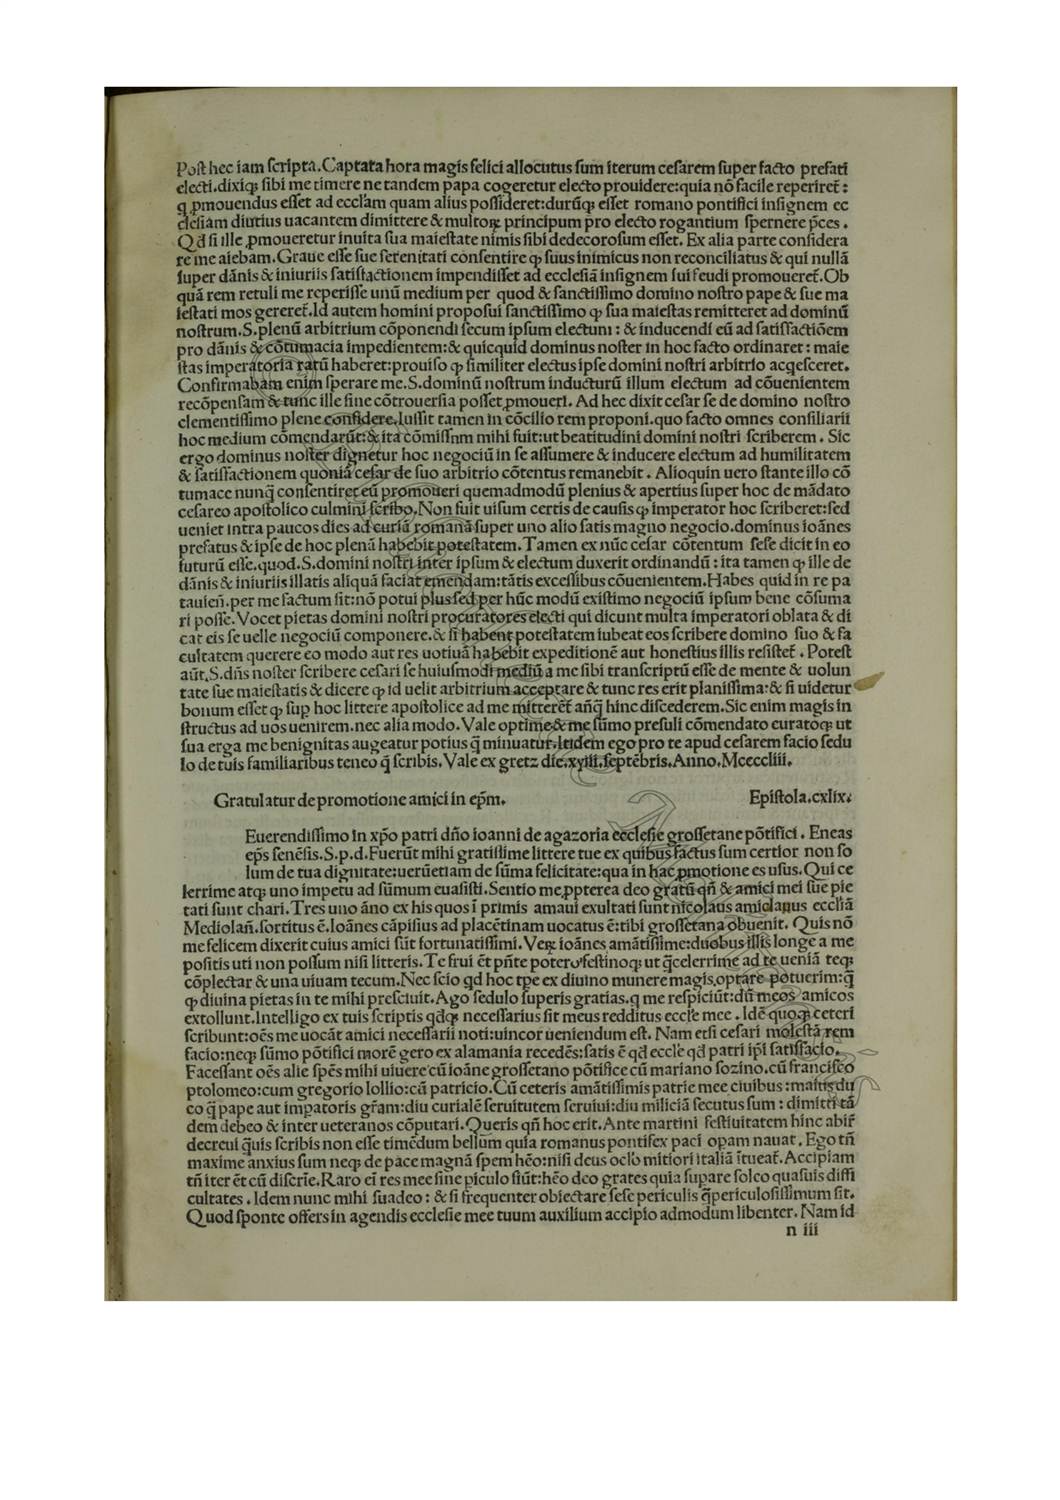 Post hec iam scripta. Captata hora magis felici allocutus sum iterum cesarem super facto prefati
electi. dixiq; sibi me timere ne tandem papa cogeretur electo prouidere: quia nō facile reperiret̄:
q ꝓmouendus esset ad ecclam quam alius possideret: durūq; esset romano pontifici insignem ec
clesiam diutius uacantem dimittere & multoꝝ principum pro electo rogantium spernere p̄ces.
Qd̄ si ille ꝓmoueretur inuita sua maiestate nimis sibi dedecorosum esset. Ex alia parte considera
re me aiebam. Graue esse sue serenitati consentire ꝙ suus inimicus non reconciliatus & qui nullā
super dānis & iniuriis satisfactionem impendisset ad ecclesiā insignem sui feudi promoueret̄. Ob
quā rem retuli me reperisse unū medium per quod & sanctissimo domino nostro pape & sue ma
iestati mos gereret̄. Id autem homini proposui sanctissimo ꝙ sua maiestas remitteret ad dominū
nostrum. S. plenū arbitrium cōponendi secum ipsum electum: & inducendi eū ad satisfactiōem
pro dānis & cōtumacia impedientem: & quicquid dominus noster in hoc facto ordinaret: maie
stas imperatoria ratū haberet: prouiso ꝙ similiter electus ipse domini nostri arbitrio acq̄esceret.
Confirmabam enim sperare me. S. dominū nostrum inducturū illum electum ad cōuenientem
recōpensam & tunc ille sine cōtrouersia posset ꝓmoueri. Ad hec dixit cesar se de domino nostro
clementissimo plene confidere. Iussit tamen in cōcilio rem proponi. quo facto omnes consiliarii
hoc medium cōmendarūt: & ita cōmissum mihi fuit: ut beatitudini domini nostri scriberem. Sic
ergo dominus noster dignetur hoc negociū in se assumere & inducere electum ad humilitatem
& satisfactionem quoniā cesar de suo arbitrio cōtentus remanebit. Alioquin uero stante illo cō
tumace nunq̄ consentiret eū promoueri quemadmodū plenius & apertius super hoc de mādato
cesareo apostolico culmini scribo. Non fuit uisum certis de causis ꝙ imperator hoc scriberet: sed
ueniet intra paucos dies ad curiā romanā super uno alio satis magno negocio. dominus ioānes
prefatus & ipse de hoc plenā habebit potestatem. Tamen ex nūc cesar cōtentum sese dicit in eo
futurū esse. quod. S. domini nostri inter ipsum & electum duxerit ordinandū: ita tamen ꝙ ille de
dānis & iniuriis illatis aliquā faciat emendam: tātis excessibus cōuenientem. Habes quid in re pa
tauieñ. per me factum sit: nō potui plus sed per hūc modū existimo negociū ipsum bene cōsuma
ri posse. Vocet pietas domini nostri procuratores electi qui dicunt multa imperatori oblata & di
cat eis se uelle negociū componere. & si habent potestatem iubeat eos scribere domino suo & fa
cultatem querere eo modo aut res uotiuā habebit expeditionē aut honestius illis resistet̄. Potest
aūt. S. dn̄s noster scribere cesari se huiusmodi mediū a me sibi transcriptū esse de mente & uolun
tate sue maiestatis & dicere ꝙ id uelit arbitrium acceptare & tunc res erit planissima: & si uidetur
bonum esset ꝙ suꝑ hoc littere apostolice ad me mitteret̄ añq̄ hinc discederem. Sic enim magis in
structus ad uos uenirem. nec alia modo. Vale optime & me sūmo presuli cōmendato curatoq; ut
sua erga me benignitas augeatur potius q̄ minuatur. Itidem ego pro te apud cesarem facio sedu
lo de tuis familiaribus teneo q̄ scribis. Vale ex gretz die. xyiii. septēbris. Anno. Mccccliii.
Gratulatur de promotione amici in ep̄m. Epistola. cxlix.
Euerendissimo in xp̄o patri dn̄o ioanni de agazoria ecclesie grossetane pōtifici. Eneas
ep̄s senēsis. S. p. d. Fuerūt mihi gratissime littere tue ex quibus factus sum certior non so
lum de tua dignitate: uerūetiam de sūma felicitate: qua in hac ꝓmotione es usus. Qui ce
lerrime atq; uno impetu ad sūmum euasisti. Sentio me ꝓpterea deo gratū qn̄ & amici mei sue pie
tati sunt chari. Tres uno āno ex his quos ī primis amaui exultati sunt nicolaus amidanus eccliā
Mediolañ. sortitus ē. Ioānes cāpisius ad placētinam uocatus ē: tibi grossetana obuenit. Quis nō
me felicem dixerit cuius amici sūt fortunatissimi. Veꝝ ioānes amātissime: duobus illis longe a me
positis uti non possum nisi litteris. Te frui ēt pn̄te potero: festinoq; ut q̄celerrime ad te ueniā teq;
cōplectar & una uiuam tecum. Nec scio qd hoc tp̄e ex diuino munere magis optare potuerim: q̄
ꝙ diuina pietas in te mihi presciuit. Ago sedulo superis gratias. q me respiciūt: dū meos amicos
extollunt. Intelligo ex tuis scriptis qd̄q; necessarius sit meus redditus eccle mee. Idē quoq; ceteri
scribunt: oēs me uocāt amici necessarii noti: uincor ueniendum est. Nam etsi cesari molestā rem
facio: neq; sūmo pōtifici morē gero ex alamania recedēs: satis ē qd̄ eccle qd̄ patri ip̄i satisfacio.
Facessant oēs alie spēs mihi uiuere cū ioāne grossetano pōtifice cū mariano sozino. cū francisco
ptolomeo: cum gregorio lollio: cū patricio. Cū ceteris amātissimis patrie mee ciuibus: maius du
co q̄ pape aut impatoris gr̄am: diu curialē seruitutem seruiui: diu miliciā secutus sum: dimitti tā
dem debeo & inter ueteranos cōputari. Queris qn̄ hoc erit. Ante martini festiuitatem hinc abir̄
decreui q̄uis scribis non esse timēdum bellum quia romanus pontifex paci opam nauat. Ego tn̄
maxime anxius sum neq; de pace magnā spem hēo: nisi deus oclo mitiori italiā ītueat̄. Accipiam
tn̄ iter ēt cū discrīe. Raro eī res mee sine piculo fiūt: hēo deo grates quia supare soleo quasuis diffi
cultates. Idem nunc mihi suadeo: & si frequenter obiectare sese periculis q̄periculosissimum sit.
Quod sponte offers in agendis ecclesie mee tuum auxilium accipio admodum libenter. Nam id
n iii